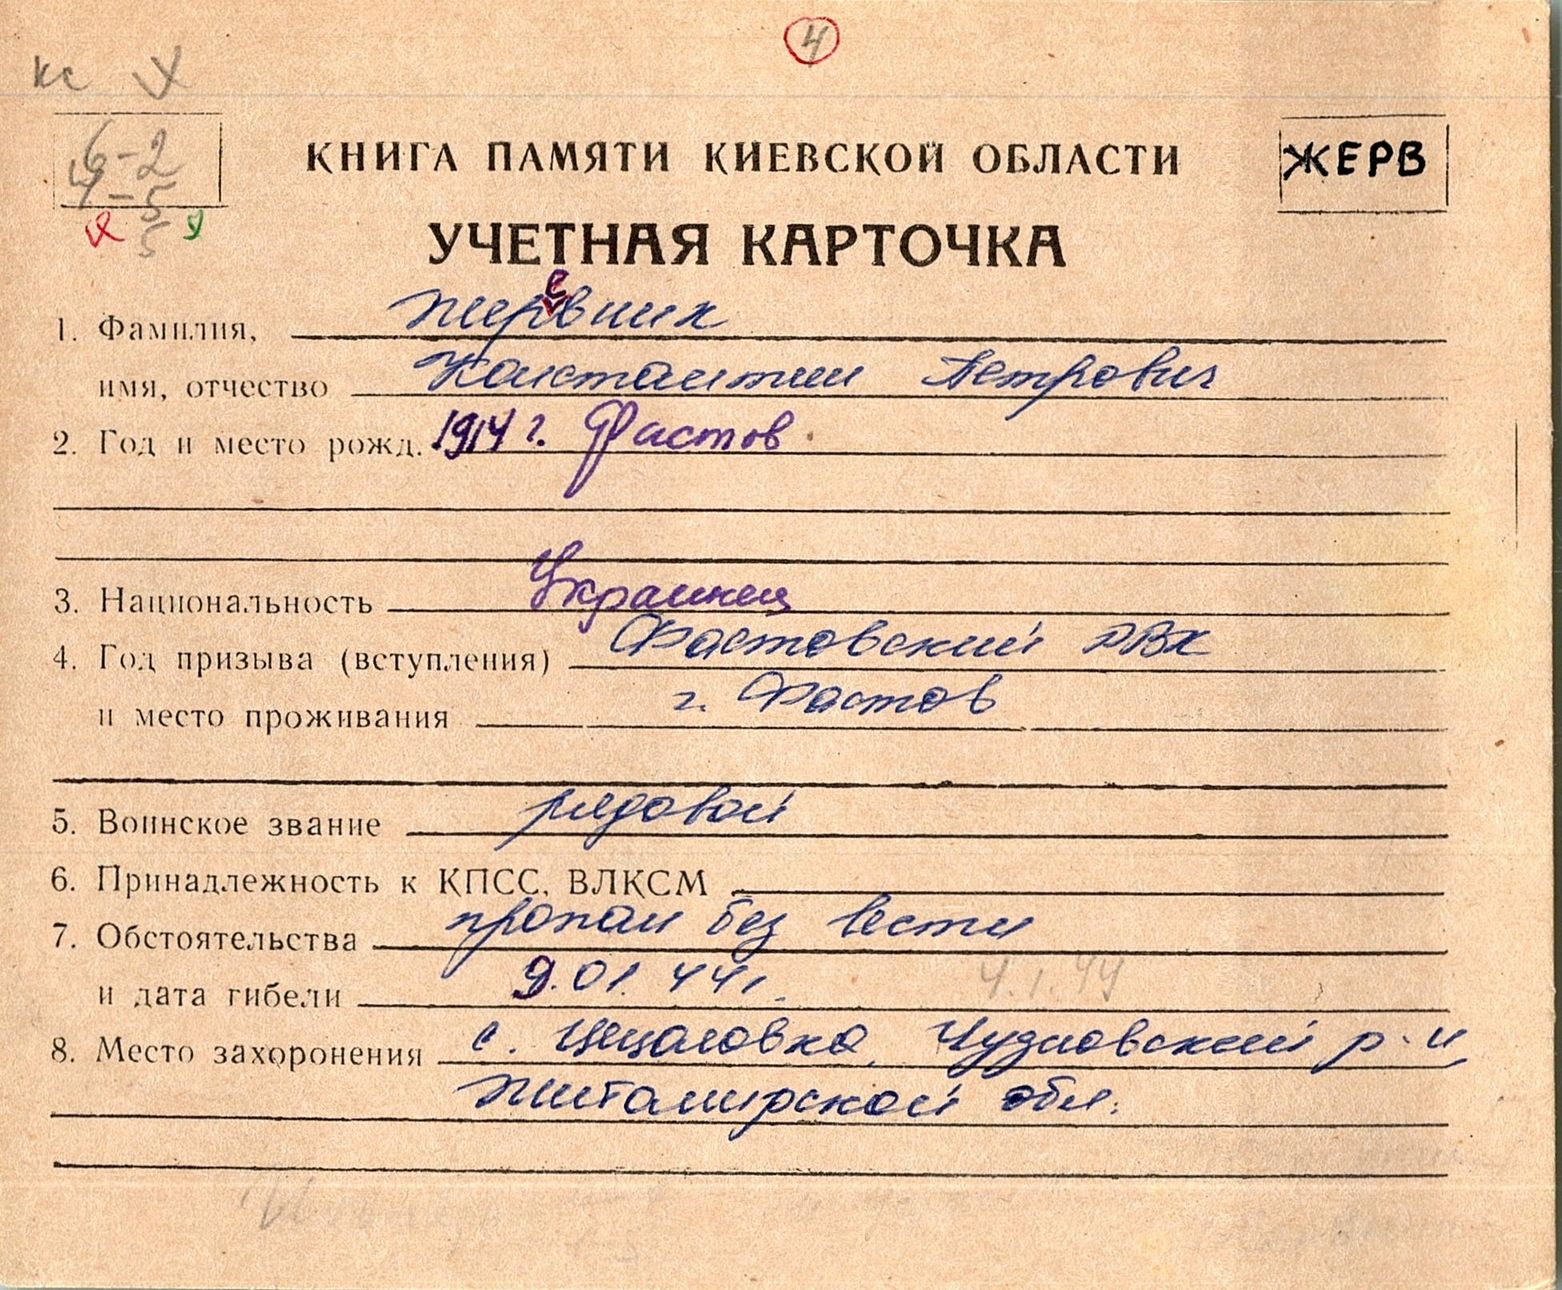 4
кс
6-2
4-5
5
КНИГА ПАМЯТИ КИЕВСКОЙ ОБЛАСТИ
ЖЕРВ
УЧЕТНАЯ КАРТОЧКА
1. Фамилия, Жеревник
имя, отчество Константин Петрович
2. Год и место рожд. 1914 г. Фастов.
3. Национальность Украинец
4. Год призыва (вступления) Фастовский РВК
и место проживания г. Фастов
5. Воинское звание рядовой
6. Принадлежность к КПСС, ВЛКСМ
7. Обстоятельства пропал без вести
и дата гибели 9.01.44г. 4.1.44
8. Место захоронения с. Чудновский р-н
Житомирской обл.